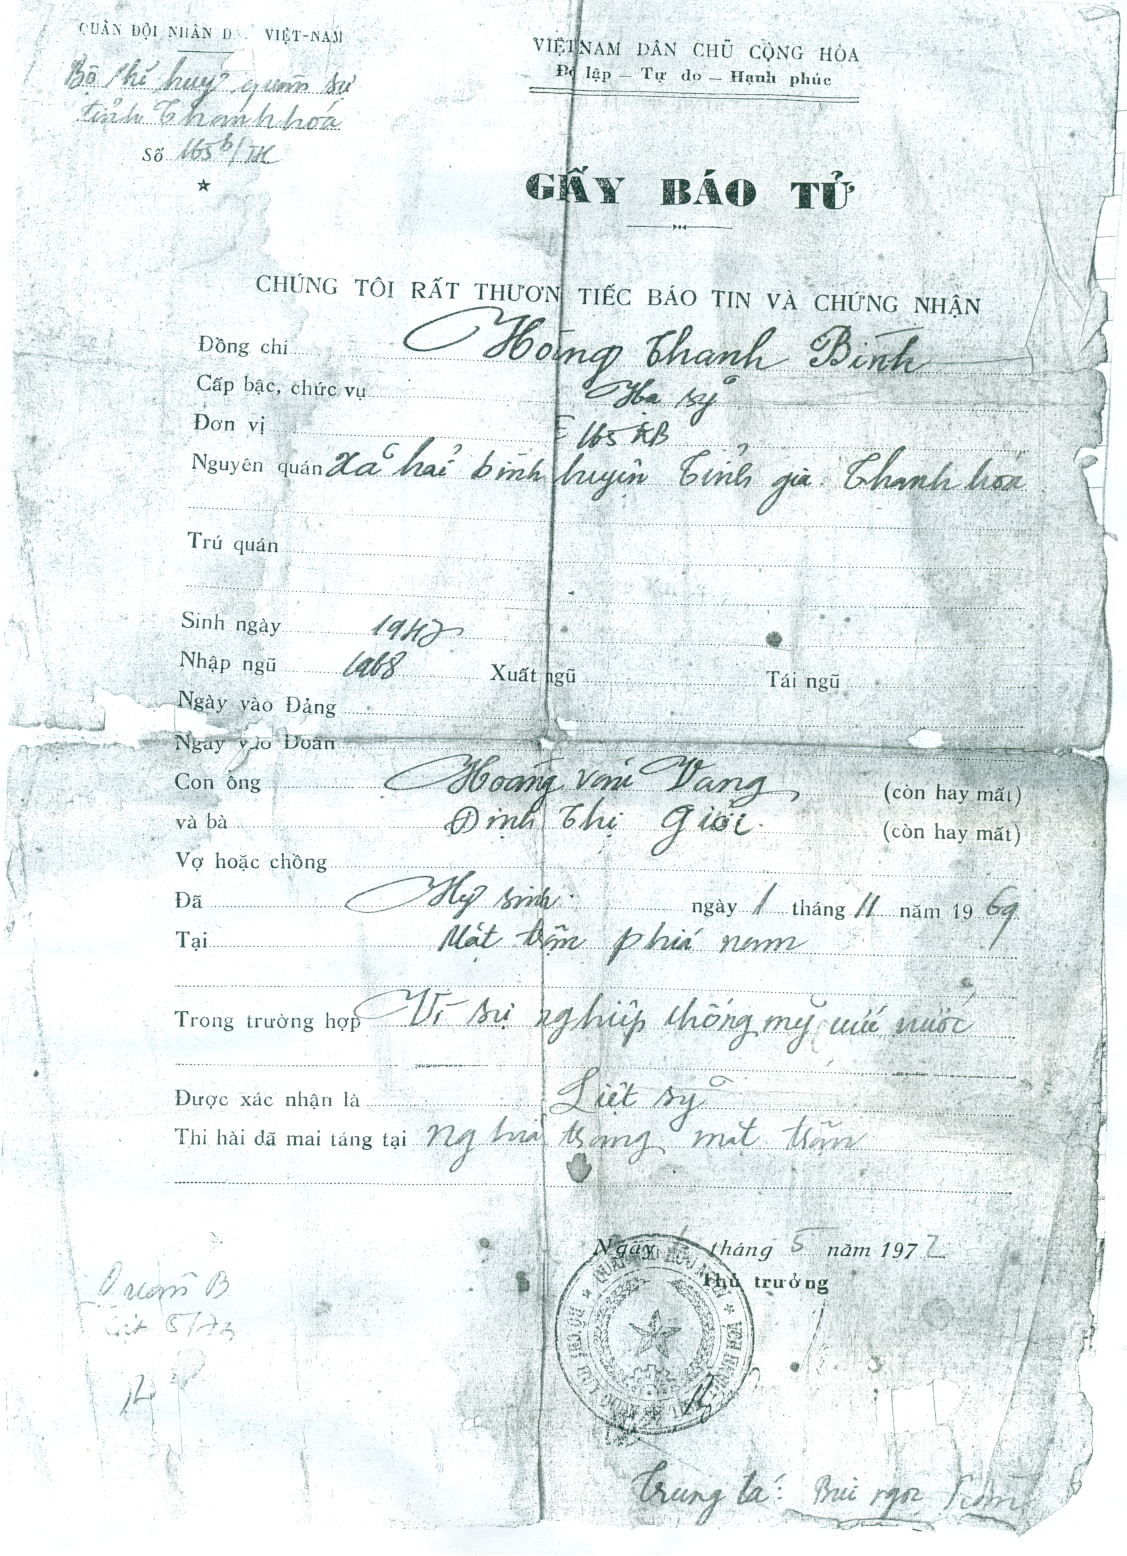 QUÂN ĐỘI NHÂN D VIỆT-NAM
Bộ chỉ huy quân sự
tỉnh Thanh hóa
Số 165b/TK
VIỆT NAM DÂN CHỦ CỘNG HÒA
Độ lập – Tự do – Hạnh phúc
GIẤY BÁO TỬ
CHÚNG TÔI RẤT THƯƠN TIẾC BÁO TIN VÀ CHỨNG NHẬN
Đồng chí Hoàng Thanh Bình
Cấp bậc, chức vụ Hạ sỹ
Đơn vị E 165 KB
Nguyên quán Xã hải bình huyện Tỉnh gia Thanh hóa
Trú quán
Sinh ngày 1947
Nhập ngũ 1968 Xuất ngũ Tái ngũ
Ngày vào Đảng
Ngày vào Đoàn
Con ông Hoàng văn Vang (còn hay mất)
và bà Đinh Thị Giới (còn hay mất)
Vợ hoặc chồng
Đã Hy sinh ngày 1 tháng 11 năm 1969
Tại Mặt trận phía nam
Trong trường hợp Vì sự nghiệp chống mỹ cứu nước
Được xác nhận là Liệt sỹ
Thi hài đã mai táng tại Nghĩa trang mặt trận
Ngày tháng 5 năm 1972
Thủ trưởng
Quân B
5/73
Trung tá: Bùi ngọc